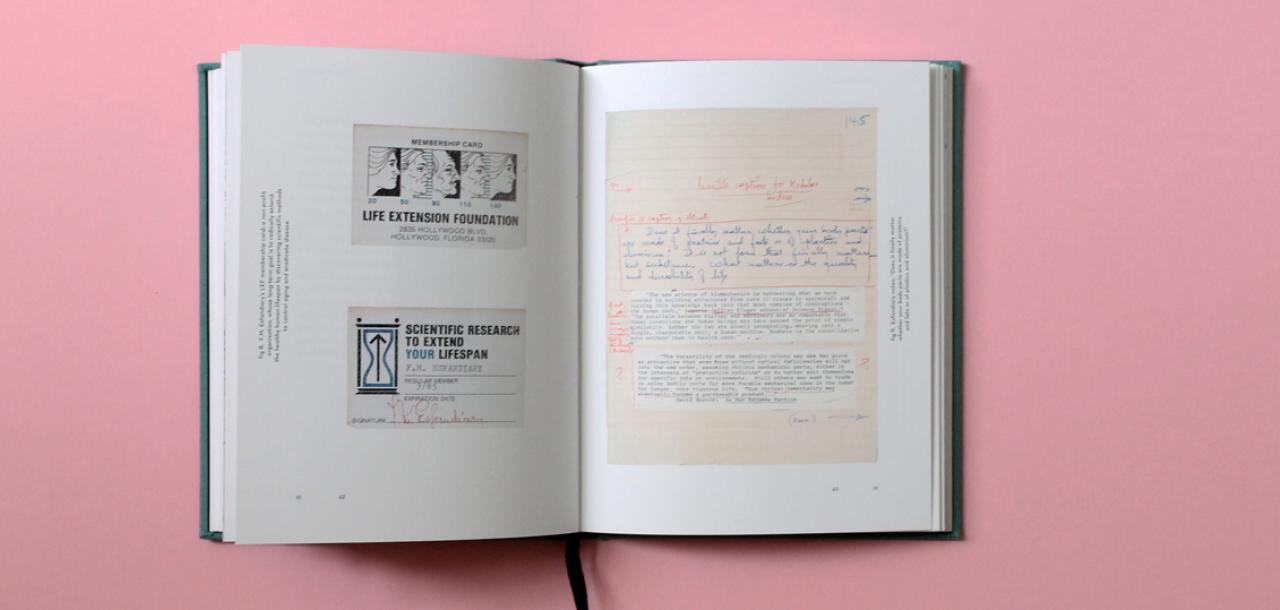 fig 8. F.M. Esfandiary's LEF membership card: a non-profit
organisation, whose long-term goal is to radically extend
the healthy human lifespan by discovering scientific methods
to control aging and eradicate disease
MEMBERSHIP CARD
20 50 80 110 140
LIFE EXTENSION FOUNDATION
2835 HOLLYWOOD BLVD.
HOLLYWOOD, FLORIDA 33020
SCIENTIFIC RESEARCH
TO EXTEND
YOUR LIFESPAN
F.M. ESFANDIARY
REGULAR MEMBER
3/85
EXPIRATION DATE
SIGNATURE
62
145
Does it finally matter whether your body parts
are made of proteins and fats or of plastics and
aluminum? It is not form that finally matters
but substance. What matters is the quality
and durability of life
"The new science of biomechanics is harnessing what we have
learned in building structures from cars to planes to spacecraft and
turning this knowledge back into that most complex of contraptions -
the human body,"
"The parallels between biology and machinery are so remarkable that
human inventions and human beings may have passed the point of simple
similarity. Rather the two are slowly integrating, weaving into a
single, inseparable unit, a human machine. Nowhere is the consolidation
more evident than in health care."
"The versatility of the medical
so attractive that even those without medical deficiencies will opt
into the new order, assuming various mechanical parts, either in
the interests of "preventive medicine" or to better suit themselves
to specific jobs or environments. Still others may seek to trade
in aging bodily parts for more durable mechanical ones in the quest
for longer, more vigorous life. Thus virtual immortality may
eventually become a purchasable product
David Rorvik: As Man Becomes Machine
63
fig 9. Esfandiary notes. "Does it finally matter
whether your body parts are made of proteins
and fats or of plastics and aluminium?"